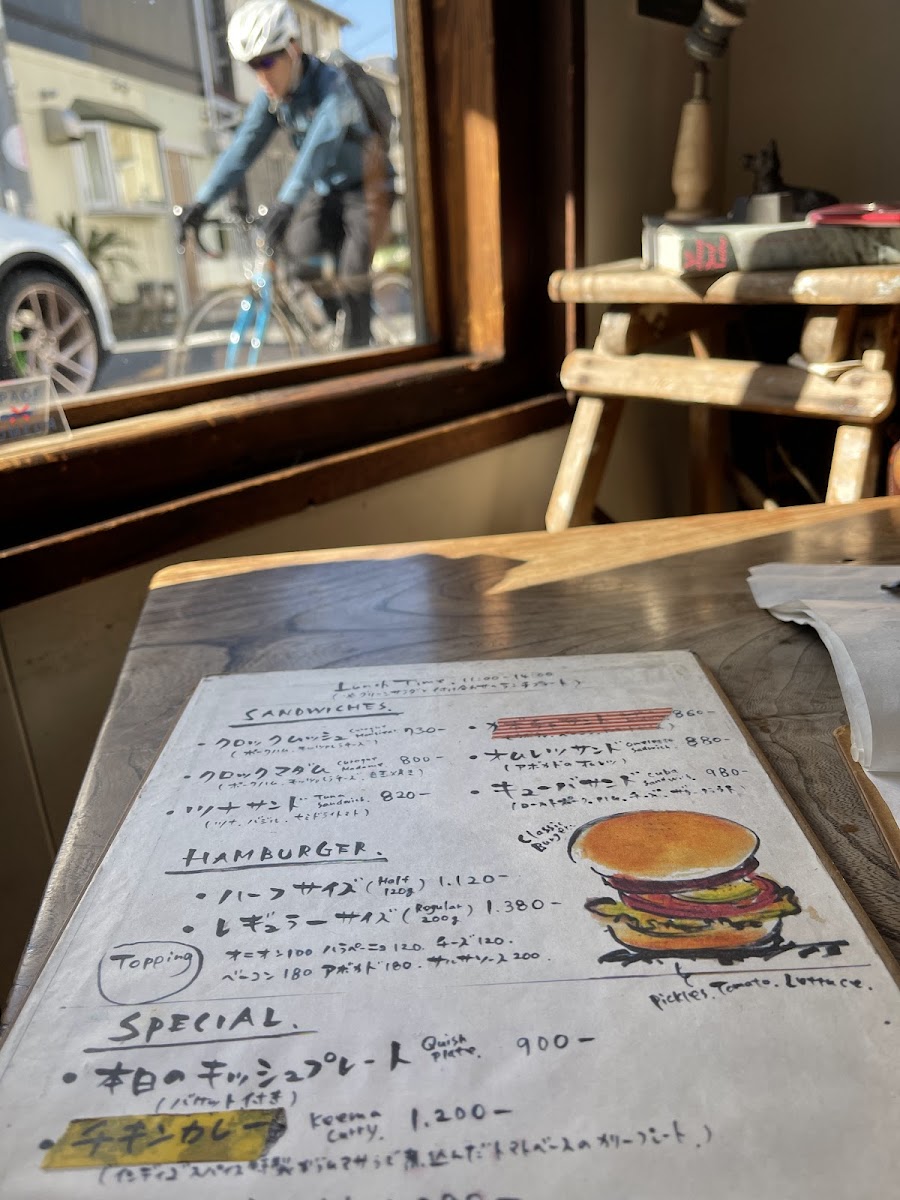 Lunch Time. 11:00-14:00
SANDWICHES.
・クロックムッシュ Croque Monsieur 730-
・クロックマダム Croque Madame 800-
・ツナサンド Tuna Sandwich. 820-
860-
・オムレツサンド Omelette Sandwich. 880-
(アボカドのオムレツ)
・キューバサンド Cuba Sandwich. 980-
HAMBURGER.
・ハーフサイズ (Half 120g) 1.120-
・レギュラーサイズ (Regular 200g) 1.380-
Topping
オニオン100 ハラペーニョ120. チーズ120.
ベーコン180 アボカド180. サルサソース200.
Classic Burger.
Pickles. Tomato. Luttuce.
SPECIAL.
・本日のキッシュプレート Quish Plate. 900-
(バケット付き)
・チキンカレー Keema Curry. 1.200-